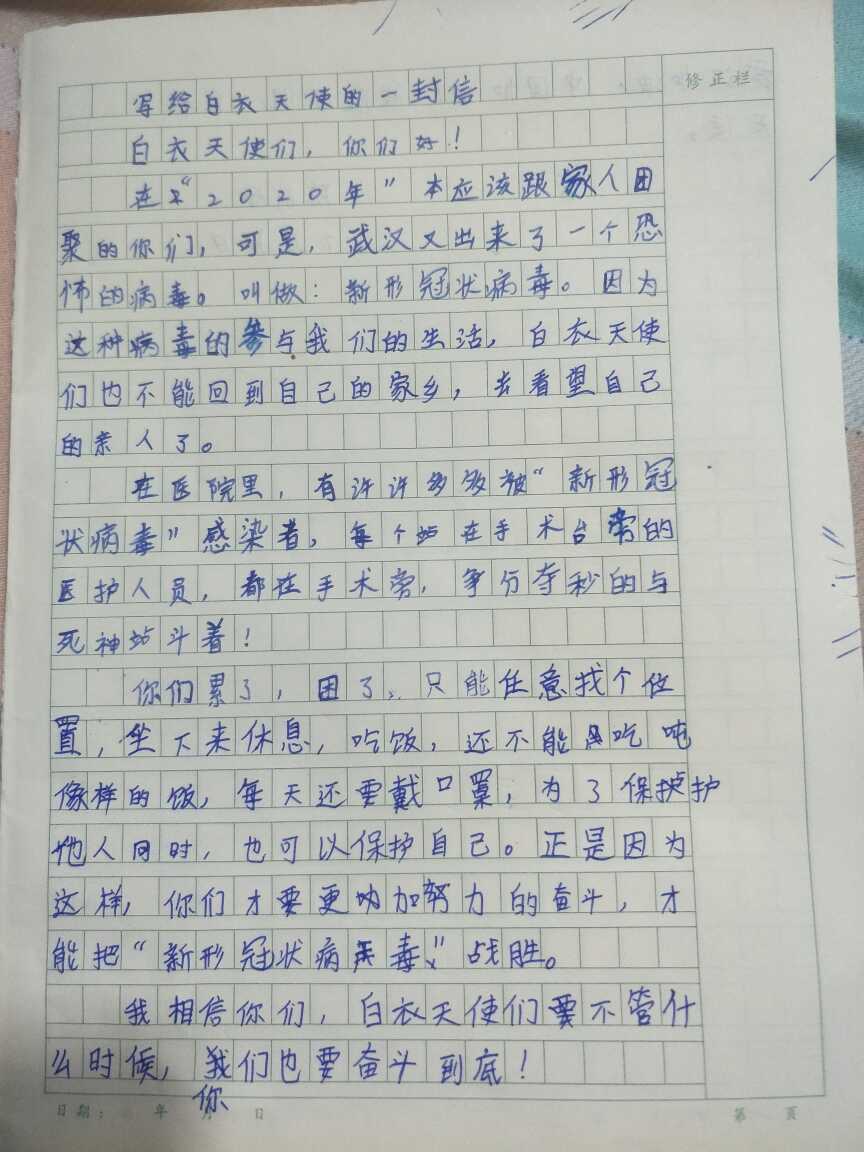 修正栏
写给白衣天使的一封信
白衣天使们，你们好！
在“2020年”本应该跟家人团
聚的你们，可是，武汉又出来了一个恐
怖的病毒。叫做：新形冠状病毒。因为
这种病毒的参与我们的生活，白衣天使
们也不能回到自己的家乡，去看望自己
的亲人了。
在医院里，有许许多多被“新形冠
状病毒”感染者，每个站在手术台旁的
医护人员，都在手术旁，争分夺秒的与
死神站斗着！
你们累了，困了，只能任意找个位
置，坐下来休息，吃饭，还不能吃吨
像样的饭，每天还要戴口罩，为了保护
他人同时，也可以保护自己。正是因为
这样，你们才要更加努力的奋斗，才
能把“新形冠状病毒”战胜。
我相信你们，白衣天使们要不管什
么时候，你们也要奋斗到底！
日期： 年 月 日 第 页